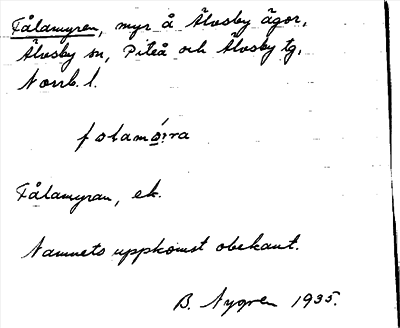 Fålamyren, myr å Älvsby ägor,
Älvsby sn, Piteå och Älvsby tg,
Norrb. l.
folamö:ra
Fålamyran, ek.
Namnets uppkomst obekant.
B. Nygren 1935.